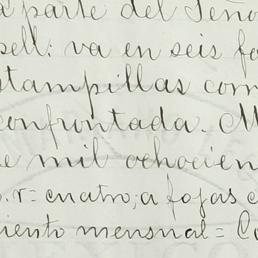 a parte del Seño
sell: va en seis fo
stampillas corr
confrontada. M
e mil ochocien
o. r= cuatro; a fojas c
iento mensual= Co